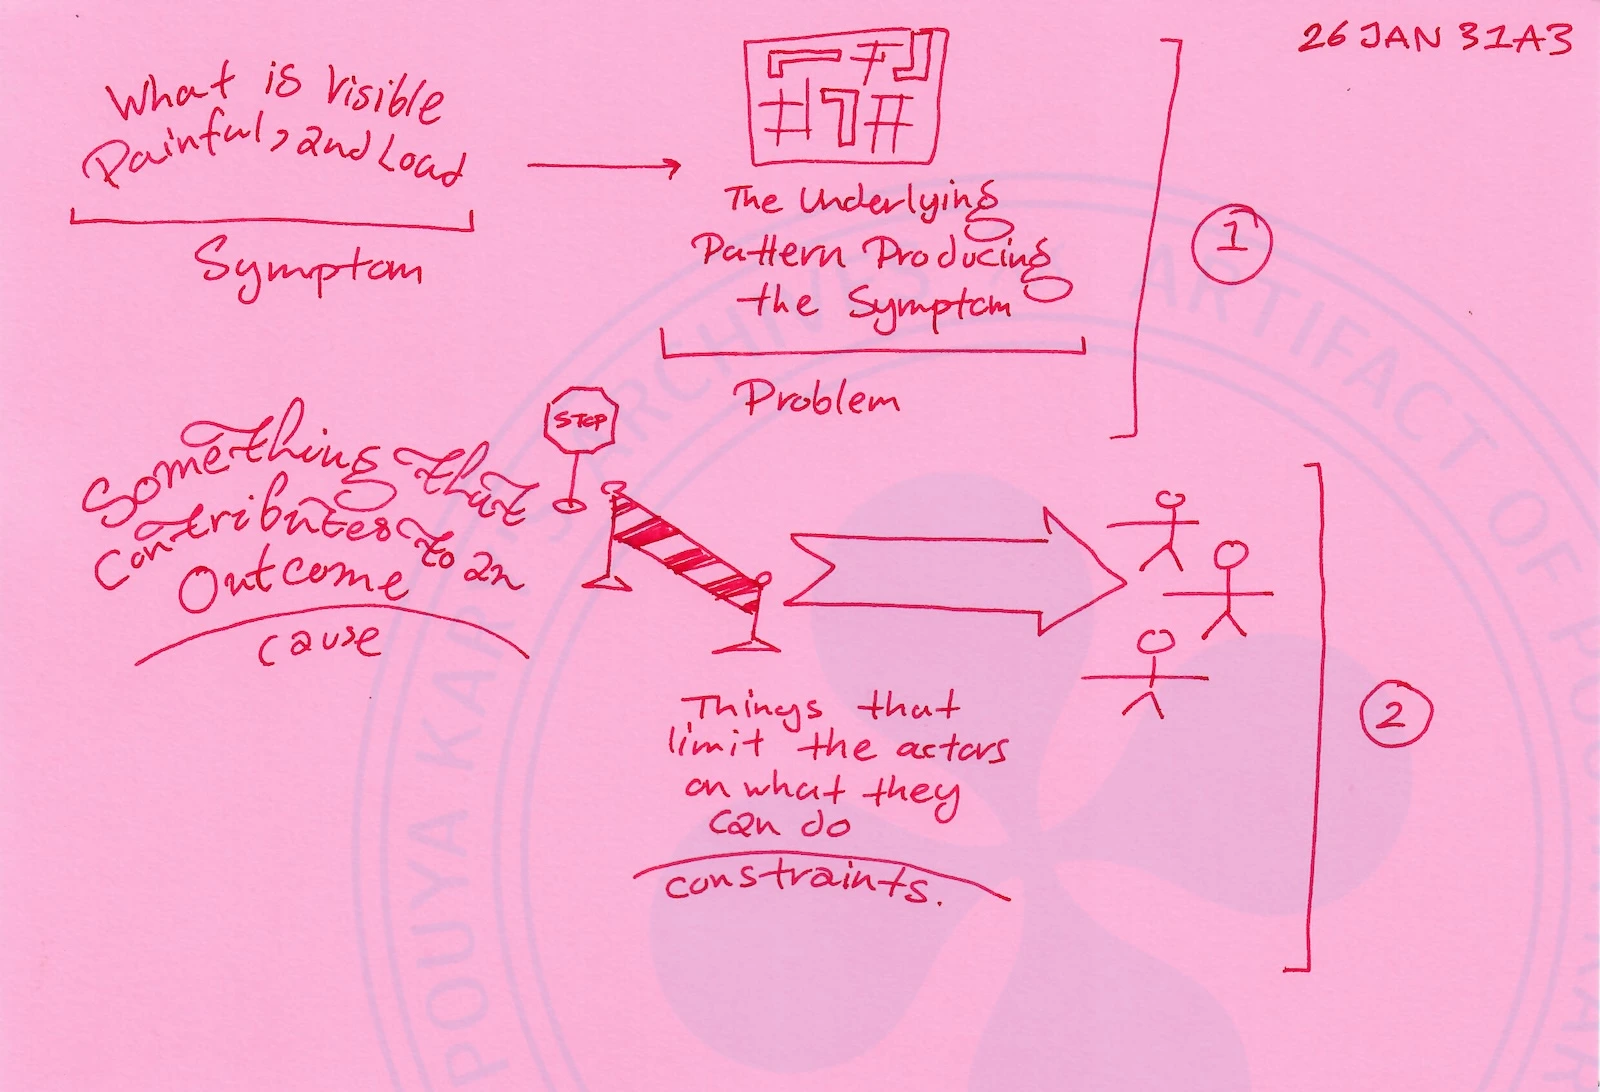 26 JAN 31A3
What is Visible
Painful, and Loud
Symptom
The Underlying
Pattern Producing
the Symptom
Problem
1
Something that
Contributes to an
Outcome
cause
STOP
Things that
limit the actors
on what they
can do
constraints.
2
POUYA KARP'S ARCHIVES
ARTIFACT OF POU